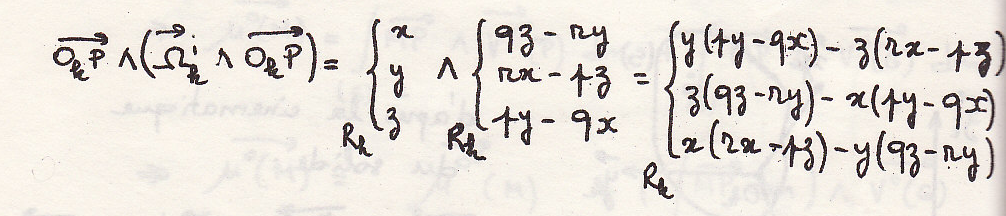 $\overrightarrow{O_k P} \wedge (\overrightarrow{\Omega}_k^i \wedge \overrightarrow{O_k P}) = \underset{R_k}{} \begin{cases} x \\ y \\ z \end{cases} \wedge \underset{R_k}{} \begin{cases} qz - ry \\ rx - pz \\ py - qx \end{cases} = \underset{R_k}{} \begin{cases} y(py - qx) - z(rx - pz) \\ z(qz - ry) - x(py - qx) \\ x(rx - pz) - y(qz - ry) \end{cases}$